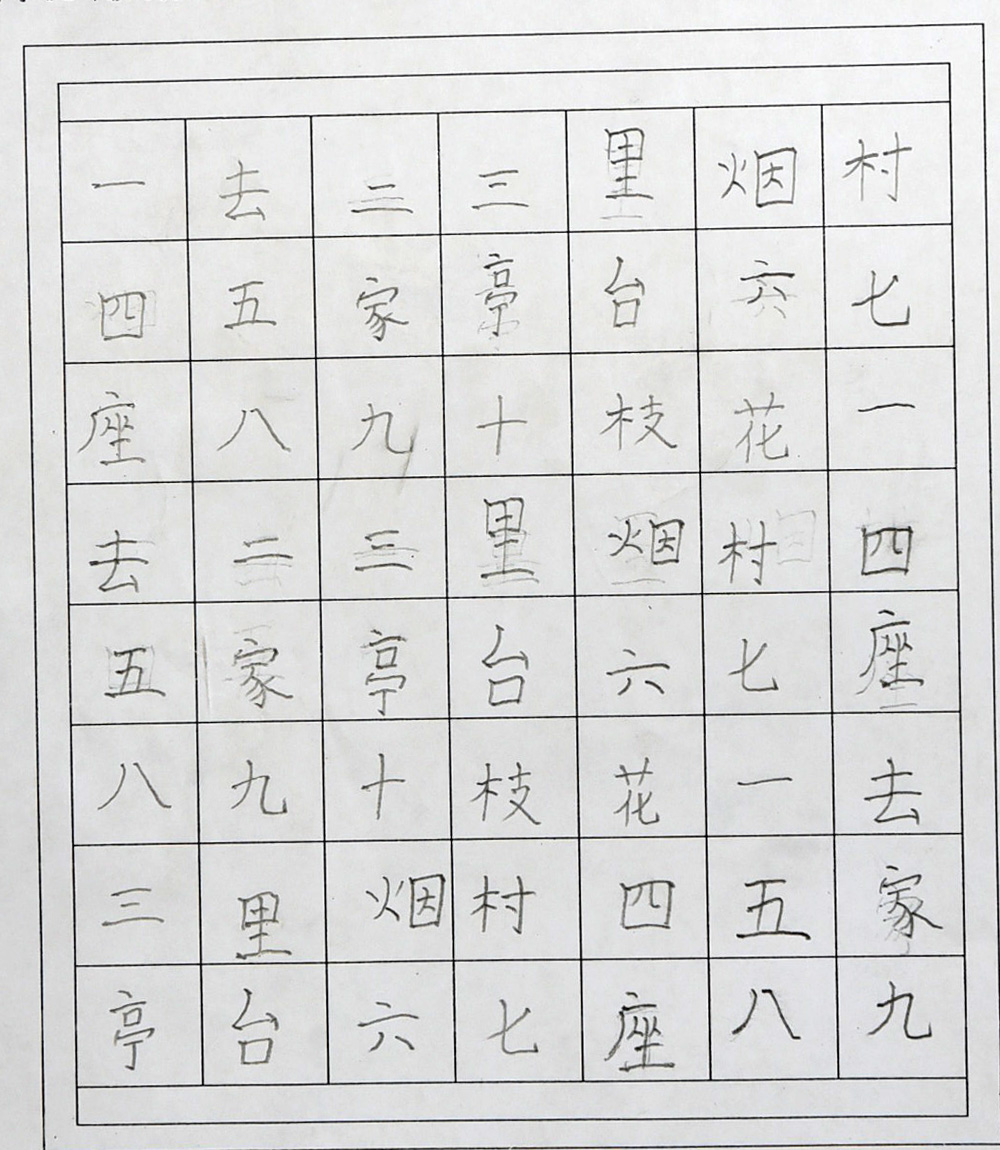 一去二三里烟村
四五家亭台六七
座八九十枝花一
去二三里烟村四
五家亭台六七座
八九十枝花一去
三里烟村四五家
亭台六七座八九